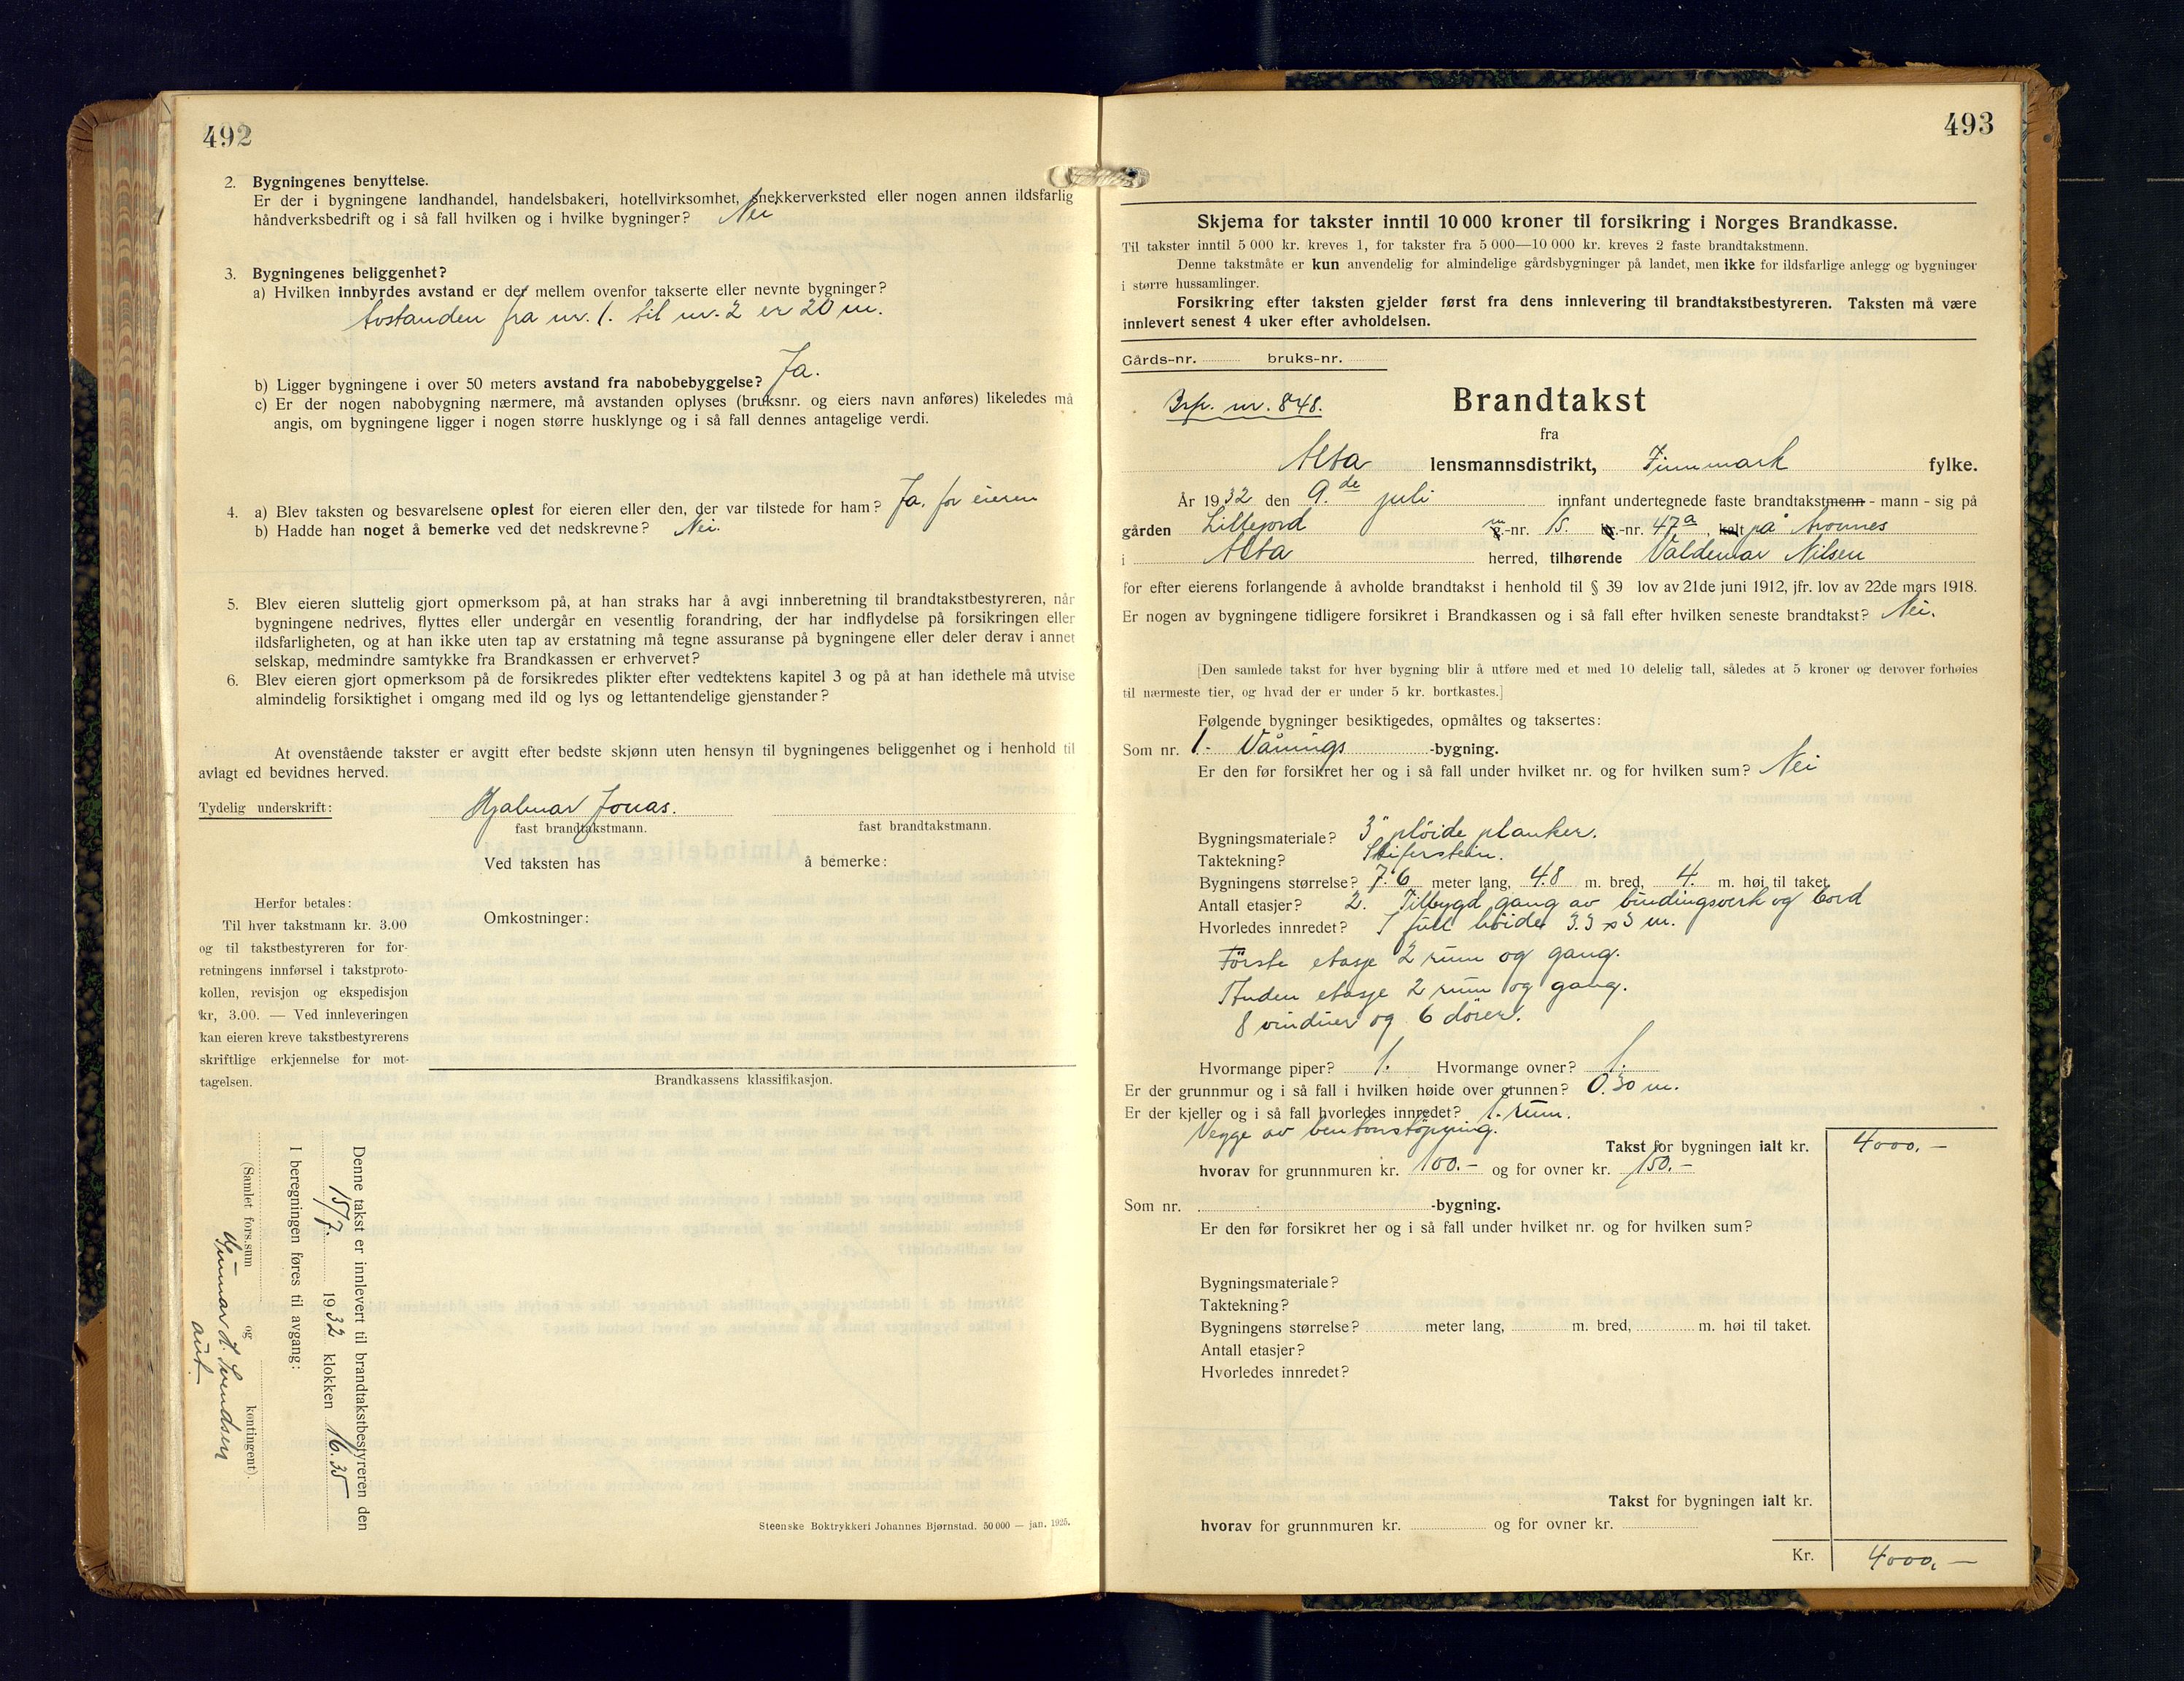 492
2. Bygningenes benyttelse.
Er der i bygningene landhandel, handelsbakeri, hotellvirksomhet, snekkerverksted eller nogen annen ildsfarlig
håndverksbedrift og i så fall hvilken og i hvilke bygninger? Nei
3. Bygningenes beliggenhet?
a) Hvilken innbyrdes avstand er der mellem ovenfor takserte eller nevnte bygninger?
Avstanden fra nr. 1. til nr. 2 er 20 m.
b) Ligger bygningene i over 50 meters avstand fra nabobebyggelse? Ja.
c) Er der nogen nabobygning nærmere, må avstanden oplyses (bruksnr. og eiers navn anføres) likeledes må
angis, om bygningene ligger i nogen større husklynge og i så fall dennes antagelige verdi.
4. a) Blev taksten og besvarelsene oplest for eieren eller den, der var tilstede for ham? Ja, for eieren
b) Hadde han noget å bemerke ved det nedskrevne? Nei.
5. Blev eieren sluttelig gjort opmerksom på, at han straks har å avgi innberetning til brandtakstbestyreren, når
bygningene nedrives, flyttes eller undergår en vesentlig forandring, der har indflydelse på forsikringen eller
ildsfarligheten, og at han ikke uten tap av erstatning må tegne assuranse på bygningene eller deler derav i annet
selskap, medmindre samtykke fra Brandkassen er erhvervet?
6. Blev eieren gjort opmerksom på de forsikredes plikter efter vedtektens kapitel 3 og på at han idethele må utvise
almindelig forsiktighet i omgang med ild og lys og lettantendelige gjenstander?
At ovenstående takster er avgitt efter bedste skjønn uten hensyn til bygningenes beliggenhet og i henhold til
avlagt ed bevidnes herved.
Tydelig underskrift: Hjalmar Jonas.
fast brandtakstmann. fast brandtakstmann.
Ved taksten has å bemerke:
Omkostninger:
Herfor betales:
Til hver takstmann kr. 3.00
og til takstbestyreren for for-
retningens innførsel i takstproto-
kollen, revisjon og ekspedisjon
kr, 3.00. — Ved innleveringen
kan eieren kreve takstbestyrerens
skriftlige erkjennelse for mot-
tagelsen.
Brandkassens klassifikasjon.
Denne takst er innlevert til brandtakstbestyreren den
15/7. 1932 klokken 16.35
I beregningen føres til avgang:
(Samlet fors.sum og kontingent).
Gunnar H. Svendsen
aut.
Steenske Boktrykkeri Johannes Bjørnstad. 50 000 — jan. 1925.
493
Skjema for takster inntil 10 000 kroner til forsikring i Norges Brandkasse.
Til takster inntil 5 000 kr. kreves 1, for takster fra 5 000—10 000 kr. kreves 2 faste brandtakstmenn.
Denne takstmåte er kun anvendelig for almindelige gårdsbygninger på landet, men ikke for ildsfarlige anlegg og bygninger
i større hussamlinger.
Forsikring efter taksten gjelder først fra dens innlevering til brandtakstbestyreren. Taksten må være
innlevert senest 4 uker efter avholdelsen.
Gårds-nr. bruks-nr.
Brp. nr. 848. Brandtakst
fra
Alta lensmannsdistrikt, Finnmark fylke.
År 1932 den 9.de juli innfant undertegnede faste brandtakstmenn - mann - sig på
gården Lillejord -nr. 15. -nr. 47a, kalt på Aronnes
i Alta herred, tilhørende Valdemar Nilsen
for efter eierens forlangende å avholde brandtakst i henhold til § 39 lov av 21de juni 1912, jfr. lov av 22de mars 1918.
Er nogen av bygningene tidligere forsikret i Brandkassen og i så fall efter hvilken seneste brandtakst? Nei.
[Den samlede takst for hver bygning blir å utføre med et med 10 delelig tall, således at 5 kroner og derover forhøies
til nærmeste tier, og hvad der er under 5 kr. bortkastes.]
Følgende bygninger besiktigedes, opmåltes og taksertes:
Som nr. 1. Vånings -bygning.
Er den før forsikret her og i så fall under hvilket nr. og for hvilken sum? Nei
Bygningsmateriale? 3" plöide planker.
Taktekning? Skiferstein.
Bygningens størrelse? 7.6 meter lang, 4.8 m. bred, 4. m. høi til taket.
Antall etasjer? 2. Tilbygd gang av bindingsverk og bord
Hvorledes innredet? I full höide 3.3 x 3 m.
Förste etasje 2 rum og gang.
Anden etasje 2 rum og gang.
8 vinduer og 6 dörer.
Hvormange piper? 1. Hvormange ovner? 1.
Er der grunnmur og i så fall i hvilken høide over grunnen? 0.30 m.
Er der kjeller og i så fall hvorledes innredet? 1. rum.
Vegge av bentonstöpning.
Takst for bygningen ialt kr. 4000.-
hvorav for grunnmuren kr. 100.- og for ovner kr. 150.-
Som nr. -bygning.
Er den før forsikret her og i så fall under hvilket nr. og for hvilken sum?
Bygningsmateriale?
Taktekning?
Bygningens størrelse? meter lang, m. bred, m. høi til taket.
Antall etasjer?
Hvorledes innredet?
Takst for bygningen ialt kr.
hvorav for grunnmuren kr. og for ovner kr.
Kr. 4000,-